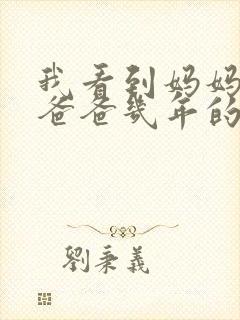 我看到妈妈
爸爸几年的
劉秉義